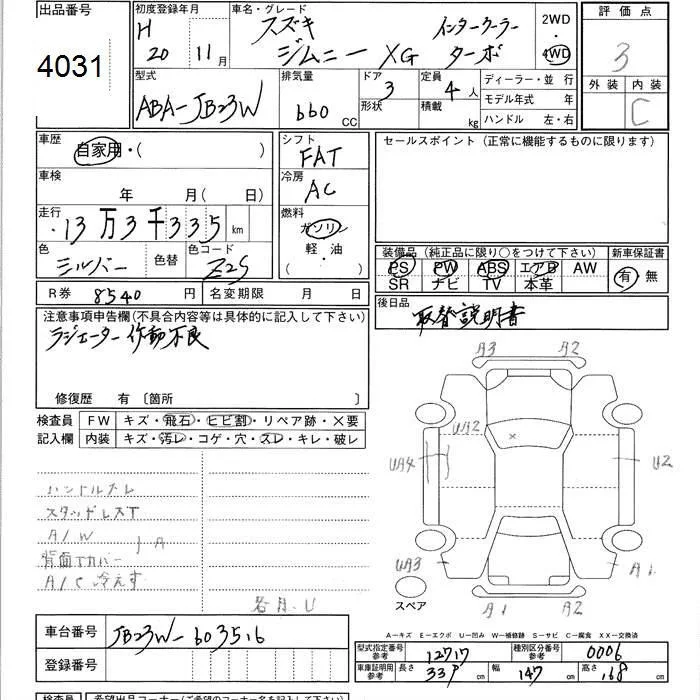 出品番号 4031
初度登録年月 H 20 11月
車名・グレード スズキ ジムニー XG インタークーラーターボ
2WD・4WD
評価点 3
外装 内装 C
型式 ABA-JB23W
排気量 660 CC
ドア 3 形状
定員 4人 積載 kg
ディーラー・並 行
モデル年式 年
ハンドル 左・右
車歴 自家用・( )
シフト FAT
セールスポイント (正常に機能するものに限ります)
車検 年 月( 日)
冷房 AC
走行 13万3千335km
燃料 ガソリン 軽・油 ( ・ )
色 シルバー 色替 色コード Z2S
装備品 (純正品に限り○をつけて下さい) 新車保証書
PS PW ABS エアB AW 有・無
SR ナビ TV 本革
R券 8540円 名変期限 月 日
後日品 取替説明書
注意事項申告欄(不具合内容等は具体的に記入して下さい)
ラジエーター作動不良
修復歴 有 〔箇所 〕
検査員記入欄 FW キズ・飛石・ヒビ割・リペア跡・X要
内装 キズ・汚レ・コゲ・穴・スレ・キレ・破レ
A3 A2
UA2 ×
UA4 U2
UA3 A1
スペア
A1 A2
ハンドルスレ
スタッドレスT
A/W A
背面Tカバー
A/C 冷えず
各月、U
A-キズ E-エクボ U-凹み W-補修跡 S-サビ C-腐食 XX-交換済
車台番号 JB23W-603516
型式指定番号参考 12717 種別区分番号参考 0006
登録番号
車庫証明用参考 長さ 339cm 幅 147cm 高さ 168cm
検査員 希望出品コーナー(ご希望のコーナー名を記入下さい)